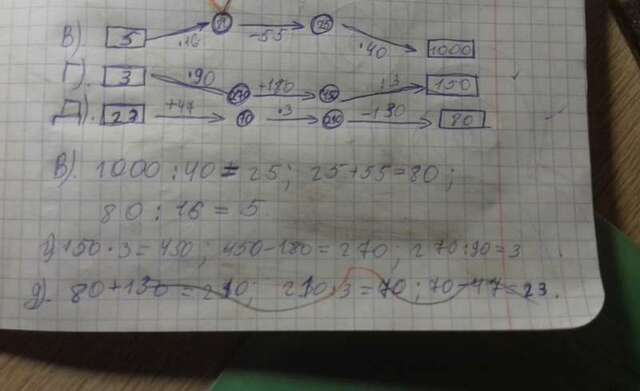 В). 5 ·16 -55 25 ·40 1000
Г). 3 ·90 270 +180 :3 150
Д). 23 +47 70 ·3 210 -130 80
В). 1000 : 40 = 25; 25+55=80;
80 : 16 = 5
г) 150 · 3 = 450; 450-180=270; 270:90=3
д). 80+130=210; 210:3=70; 70-47=23.